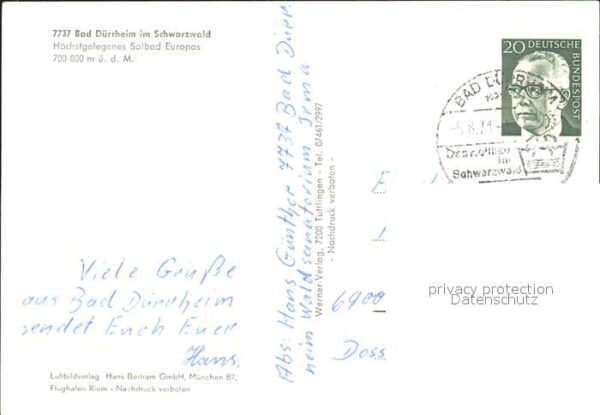 7737 Bad Dürrheim im Schwarzwald
Höchstgelegenes Solbad Europas
700-800 m ü. d. M.
Viele Grüße
aus Bad Dürrheim
sendet Euch Euer
Hans.
Luftbildverlag Hans Bertram GmbH, München 87,
Flughafen Riem - Nachdruck verboten
Abs: Hans Günther 7737 Bad Dürr
heim Waldsanatorium Irma
Werner-Verlag, 7200 Tuttlingen - Tel. 07461/2997
- Nachdruck verboten -
20 DEUTSCHE
BUNDESPOST
BAD DÜRRHEIM
Das Solbad
im
Schwarzwald
E
6900
Doss
privacy protection
Datenschutz